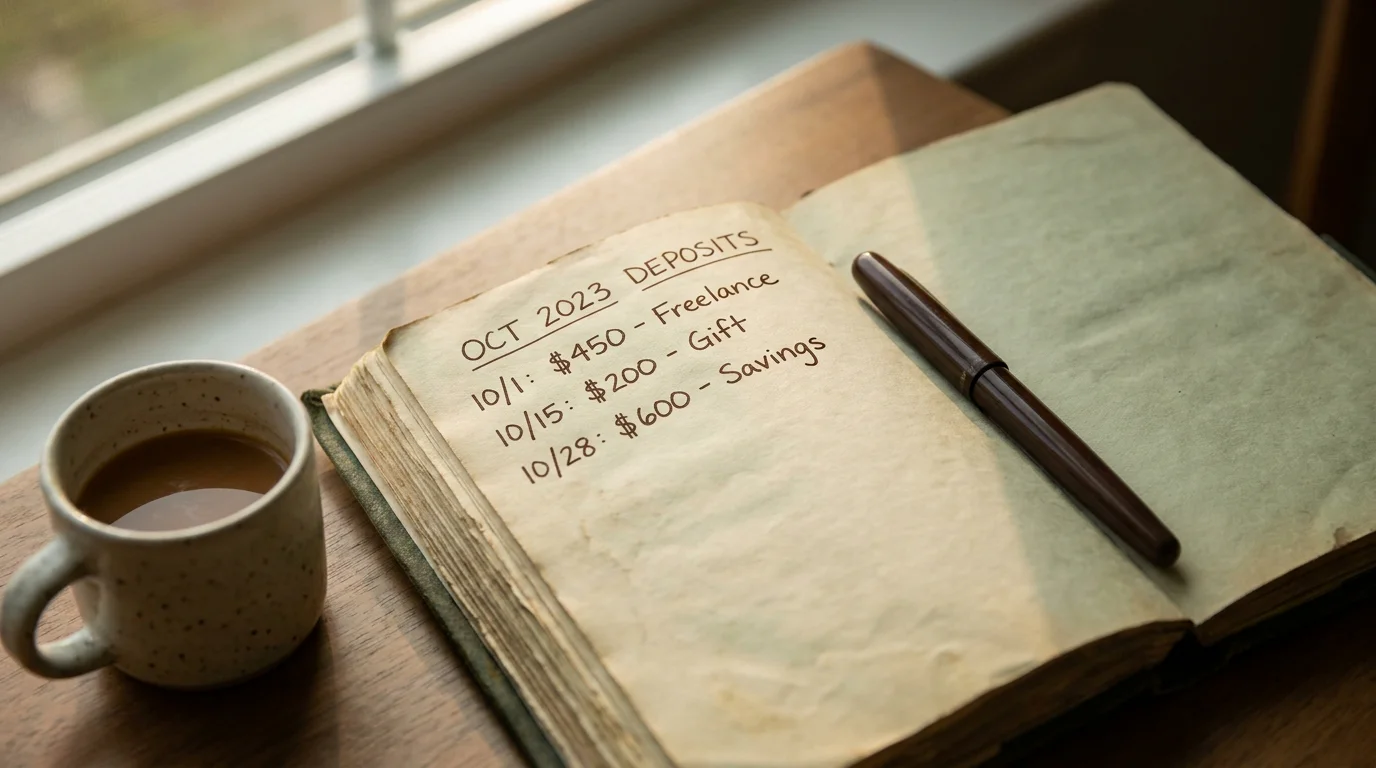 OCT 2023 DEPOSITS
10/1: $450 - Freelance
10/15: $200 - Gift
10/28: $600 - Savings